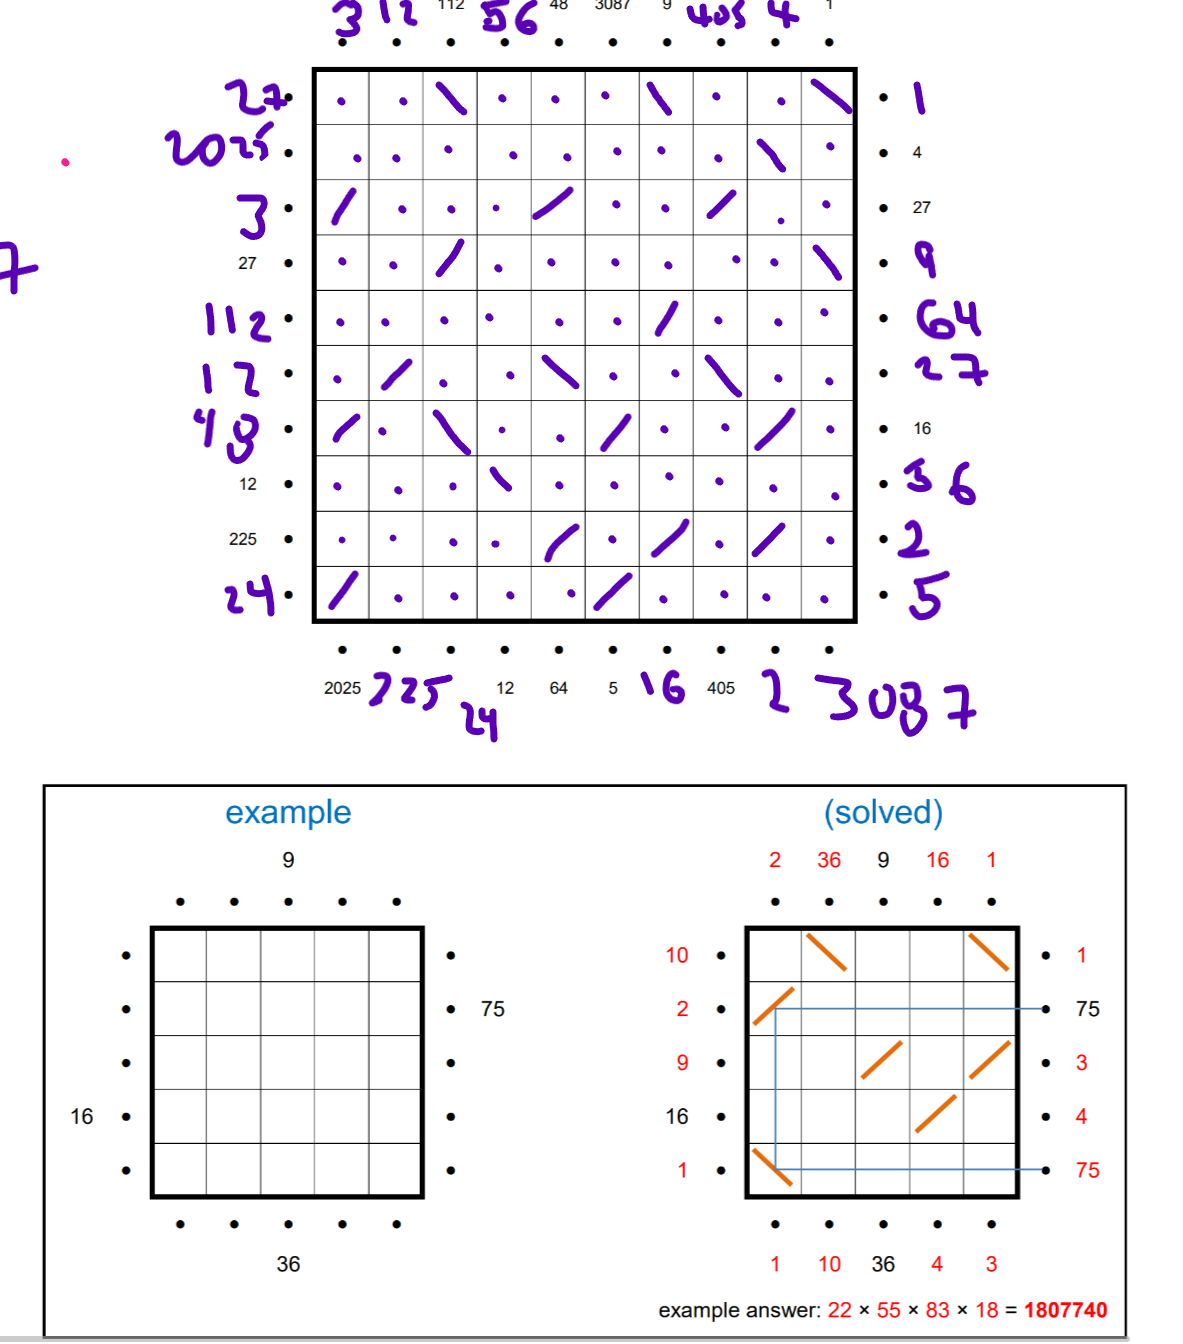 3 12 112 56 48 3087 9 405 4 1
27 1
2025 4
3 27
27 9
7
112 64
12 27
48 16
12 36
225 2
24 5
2025 225 24 12 64 5 16 405 2 3087
example (solved)
9 2 36 9 16 1
10 1
75 2 75
9 3
16 16 4
1 75
36 1 10 36 4 3
example answer: 22 × 55 × 83 × 18 = 1807740